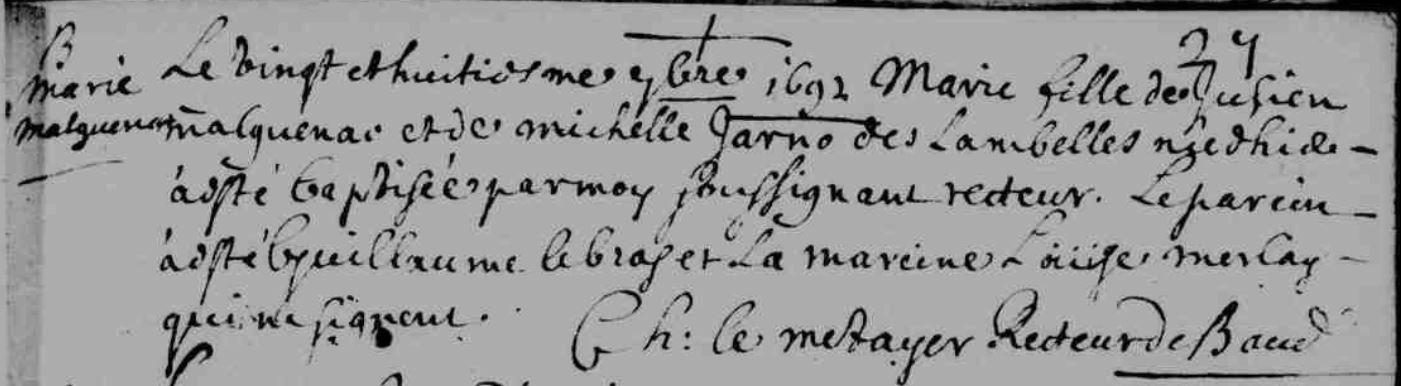 B
Marie
malquenac
27
Le vingt et huitiesme 9bre 1692 Marie fille de Julien
malquenac et de michelle Jarno des Lambelles née d'hier
a esté baptisée par moy soussignant recteur. Le parein
a esté Guillaume le bras et La mareine Louise merlay
qui ne signent.
Ch: le metayer Recteur de Baud